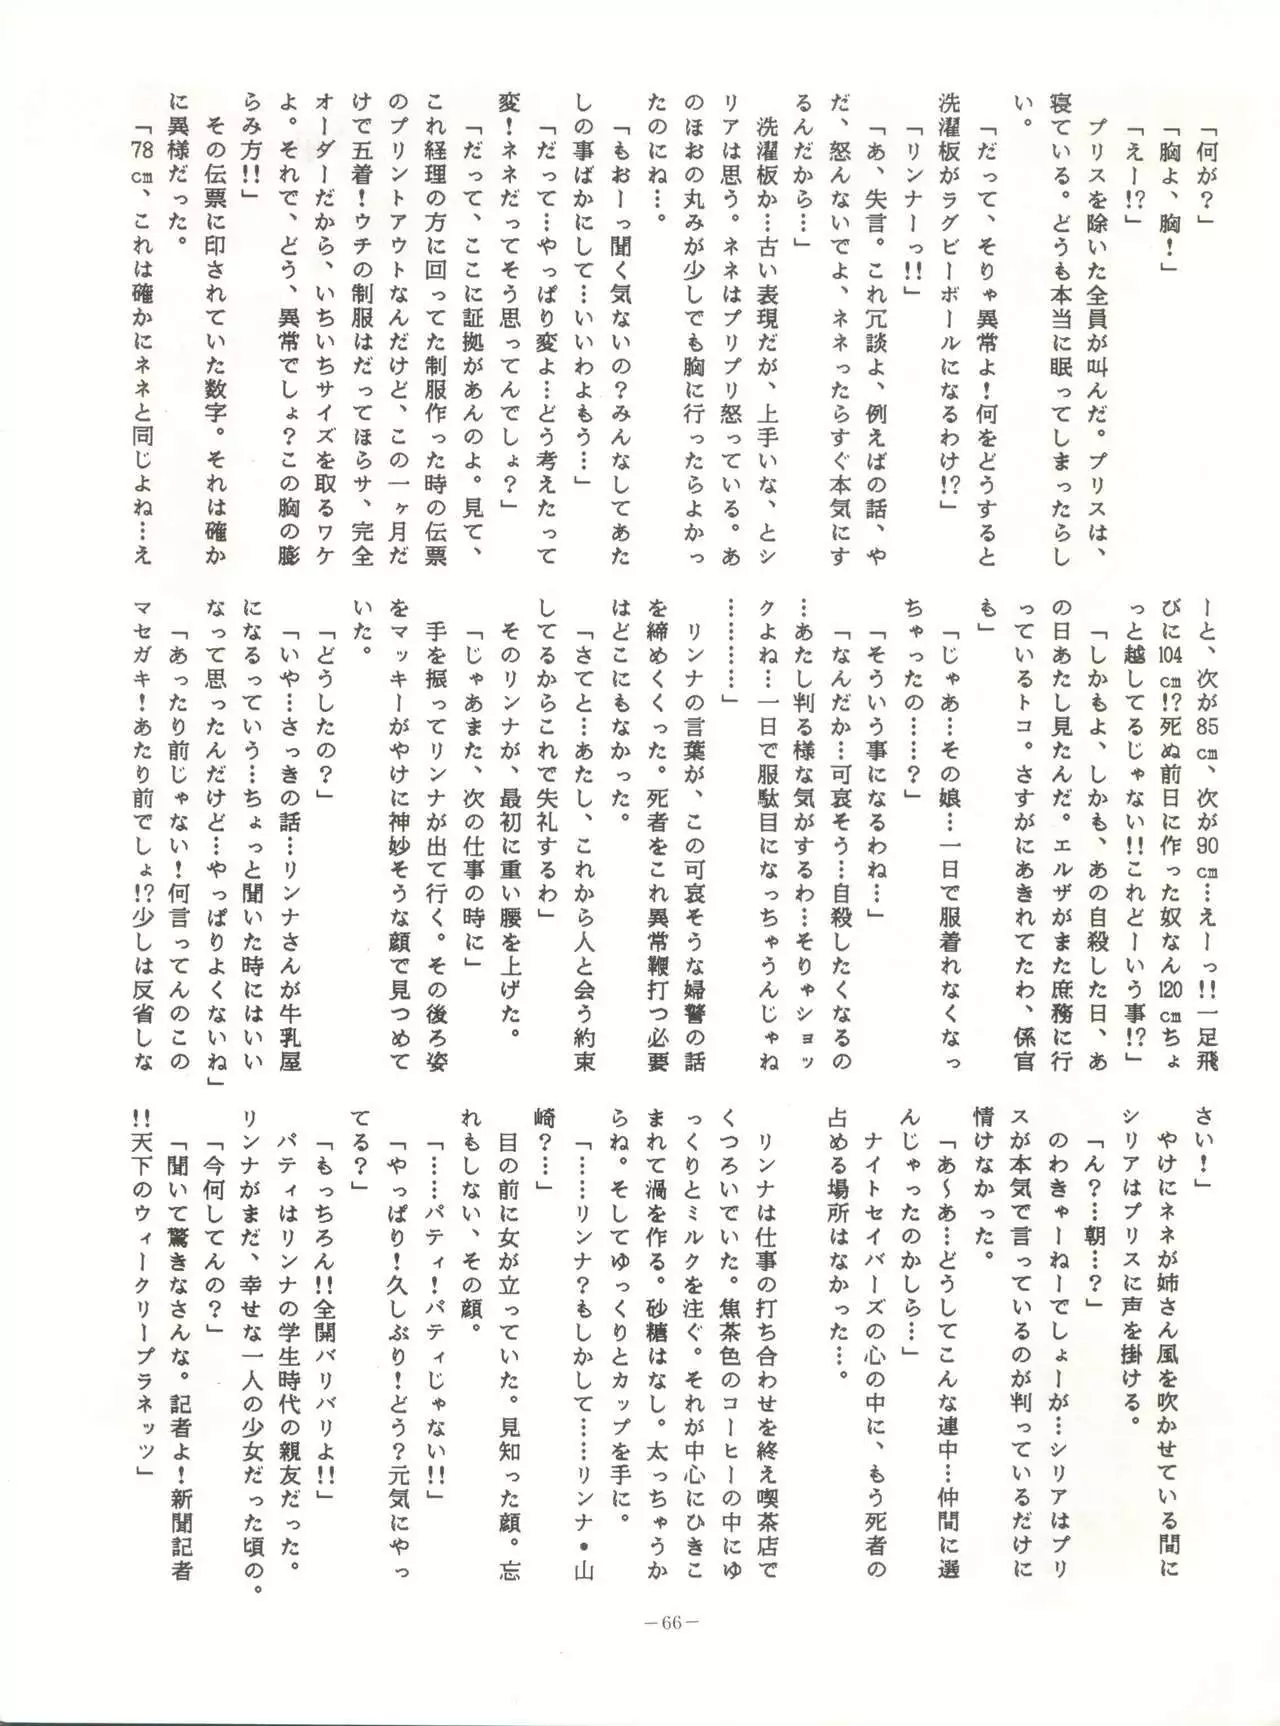 「何が？」
「胸よ、胸！」
「えー!?」
プリスを除いた全員が叫んだ。プリスは、
寝ている。どうも本当に眠ってしまったらし
い。
「だって、そりゃ異常よ！何をどうすると
洗濯板がラグビーボールになるわけ!?」
「リンナーっ!!」
「あ、失言。これ冗談よ、例えばの話、や
だ、怒んないでよ、ネネったらすぐ本気にす
るんだから…」
洗濯板か…古い表現だが、上手いな、とシ
リアは思う。ネネはプリプリ怒っている。あ
のほおの丸みが少しでも胸に行ったらよかっ
たのにね…。
「もおーっ聞く気ないの？みんなしてあた
しの事ばかにして…いいわよもう…」
「だって…やっぱり変よ…どう考えたって
変！ネネだってそう思ってんでしょ？」
「だって、ここに証拠があんのよ。見て、
これ経理の方に回ってた制服作った時の伝票
のプリントアウトなんだけど、この一ヶ月だ
けで五着！ウチの制服はだってほらサ、完全
オーダーだから、いちいちサイズを取るワケ
よ。それで、どう、異常でしょ？この胸の膨
らみ方!!」
その伝票に印されていた数字。それは確か
に異様だった。
「78㎝、これは確かにネネと同じよね…え
ーと、次が85㎝、次が90㎝…えーっ!!一足飛
びに104㎝!?死ぬ前日に作った奴なん120㎝ちょ
っと越してるじゃない!!これどーいう事!?」
「しかもよ、しかも、あの自殺した日、あ
の日あたし見たんだ。エルザがまた庶務に行
っているトコ。さすがにあきれてたわ、係官
も」
「じゃあ…その娘…一日で服着れなくなっ
ちゃったの……？」
「そういう事になるわね…」
「なんだか…可哀そう…自殺したくなるの
…あたし判る様な気がするわ…そりゃショッ
クよね…一日で服駄目になっちゃうんじゃね
…………」
リンナの言葉が、この可哀そうな婦警の話
を締めくくった。死者をこれ異常鞭打つ必要
はどこにもなかった。
「さてと…あたし、これから人と会う約束
してるからこれで失礼するわ」
そのリンナが、最初に重い腰を上げた。
「じゃあまた、次の仕事の時に」
手を振ってリンナが出て行く。その後ろ姿
をマッキーがやけに神妙そうな顔で見つめて
いた。
「どうしたの？」
「いや…さっきの話…リンナさんが牛乳屋
になるっていう…ちょっと聞いた時にはいい
なって思ったんだけど…やっぱりよくないね」
「あったり前じゃない！何言ってんのこの
マセガキ！あたり前でしょ!?少しは反省しな
さい！」
やけにネネが姉さん風を吹かせている間に
シリアはプリスに声を掛ける。
「ん？…朝…？」
のわきゃーねーでしょーが…シリアはプリ
スが本気で言っているのが判っているだけに
情けなかった。
「あ～あ…どうしてこんな連中…仲間に選
んじゃったのかしら…」
ナイトセイバーズの心の中に、もう死者の
占める場所はなかった…。
リンナは仕事の打ち合わせを終え喫茶店で
くつろいでいた。焦茶色のコーヒーの中にゆ
っくりとミルクを注ぐ。それが中心にひきこ
まれて渦を作る。砂糖はなし。太っちゃうか
らね。そしてゆっくりとカップを手に。
「……リンナ？もしかして……リンナ・山
崎？…」
目の前に女が立っていた。見知った顔。忘
れもしない、その顔。
「……パティ！パティじゃない!!」
「やっぱり！久しぶり！どう？元気にやっ
てる？」
「もっちろん!!全開バリバリよ!!」
パティはリンナの学生時代の親友だった。
リンナがまだ、幸せな一人の少女だった頃の。
「今何してんの？」
「聞いて驚きなさんな。記者よ！新聞記者
!!天下のウィークリープラネッツ」
－66－